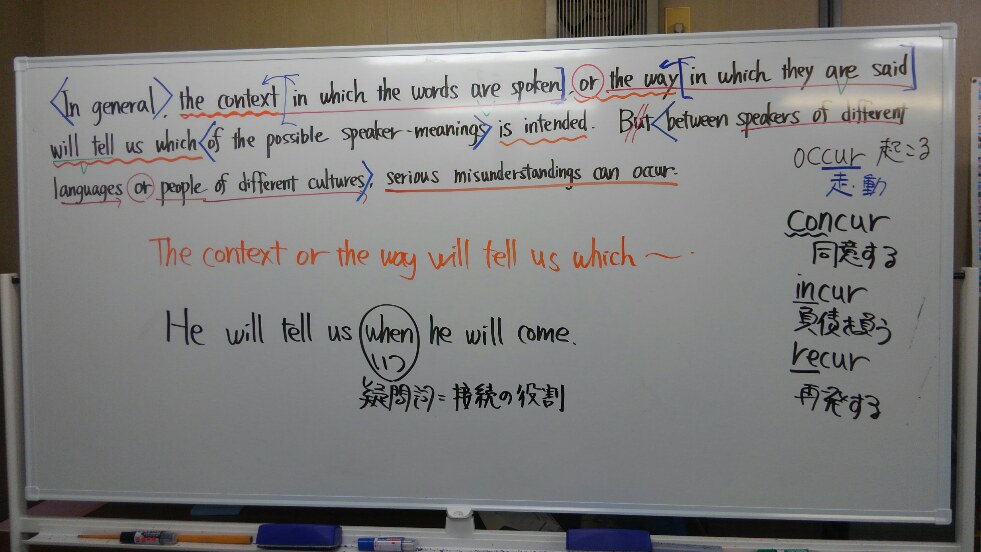 <In general>. the context [in which the words are spoken] or the way [in which they are said]
will tell us which <of the possible speaker-meanings> is intended. But <between speakers of different
languages or people of different cultures>, serious misunderstandings can occur.
occur 起こる
走・動
concur
同意する
incur
負債を負う
recur
再発する
The context or the way will tell us which ~.
He will tell us when he will come.
いつ
疑問詞=接続の役割